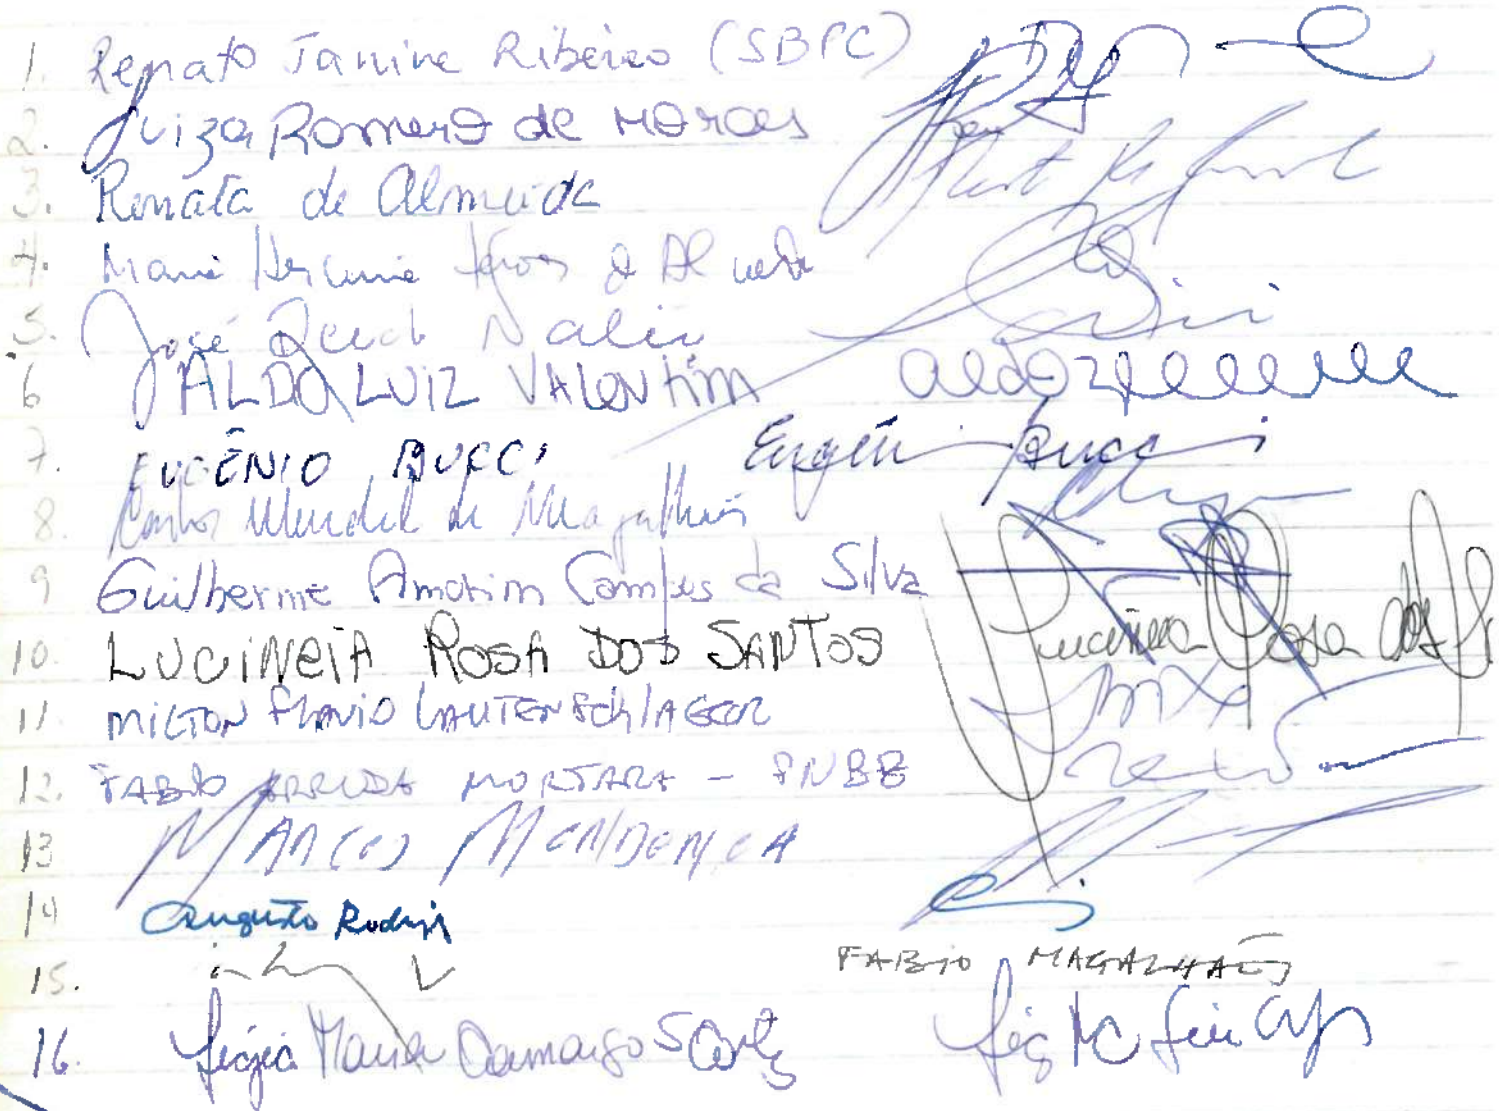 1. Renato Janine Ribeiro (SBPC)
2. Luiza Romero de Moraes
3. Renata de Almeida
4. Maria Herminia de Almeida
5. José Renato Nalini
6 ALDO LUIZ VALENTIM
7. EUGÊNIO BUCCI Eugênio Bucci
8. Carlos Mendel de Magalhães
9 Guilherme Amorim Campos da Silva
10. LUCINEIA ROSA DOS SANTOS Lucineia Rosa dos S
11 MILTON FLAVIO LAUTENSCHLAGER
12. FABIO ARRUDA MORTARA - SNBB
13 MARCOS MENDONÇA
14 Augusto
15. FABIO MAGALHAES
16. Ligia Maria Camargo